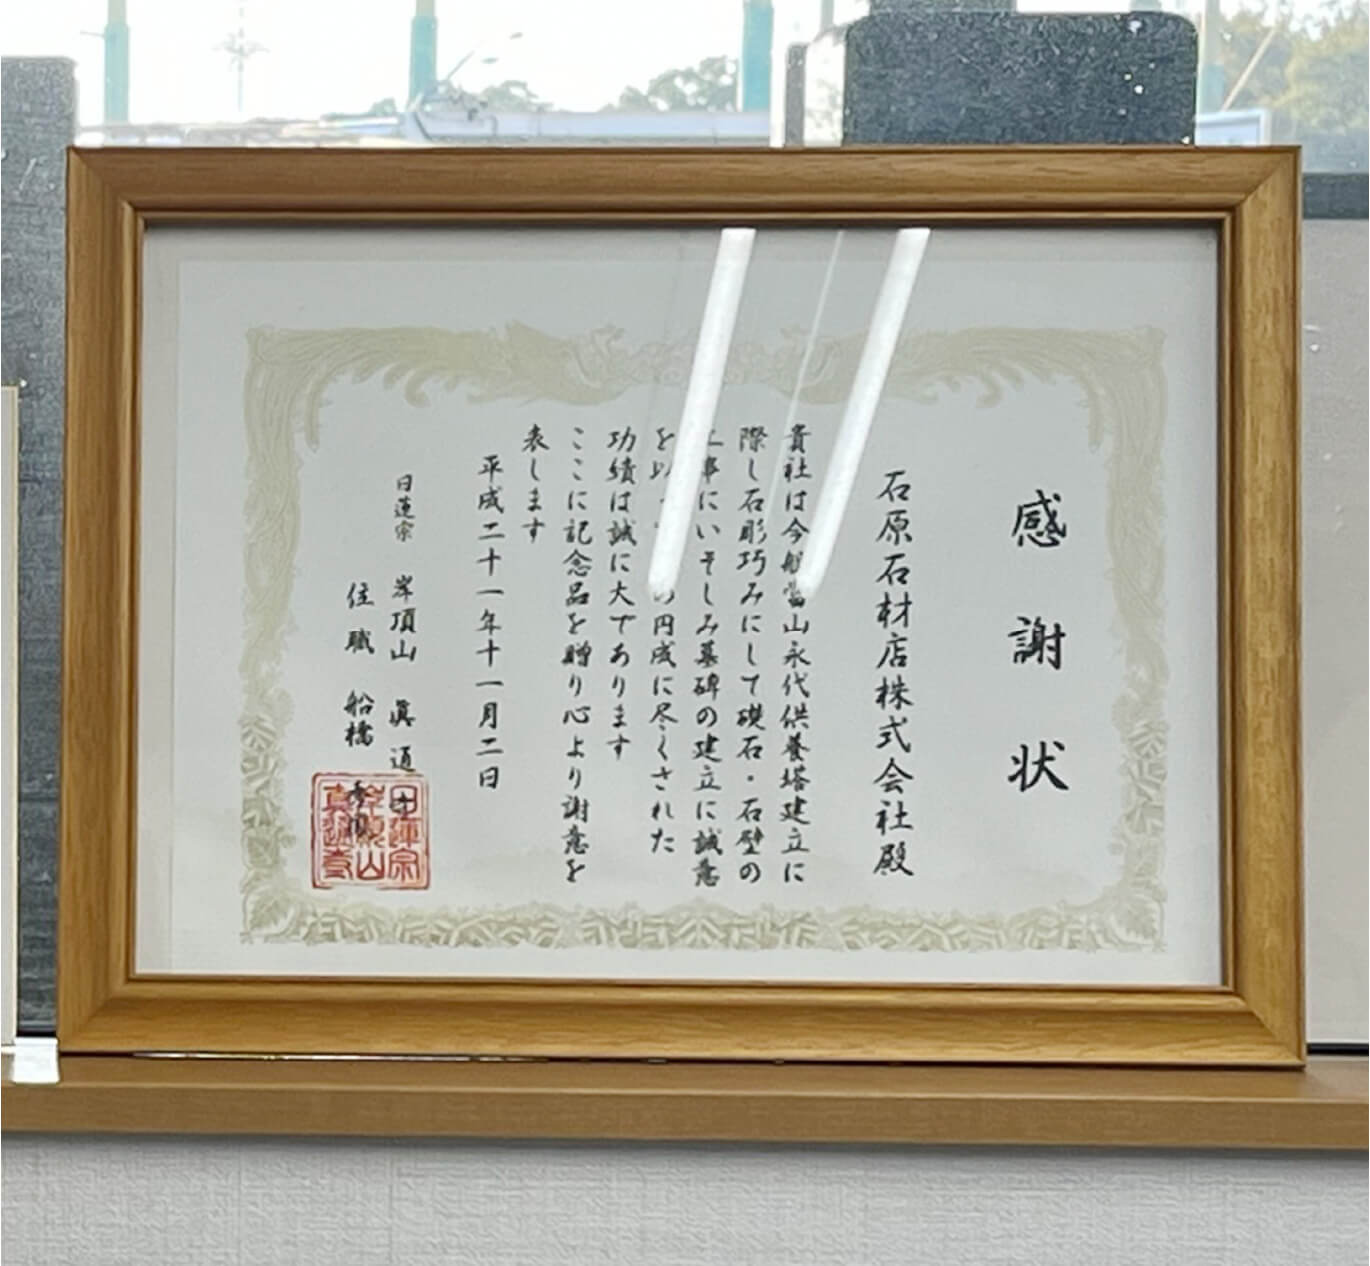 感謝状
石原石材店株式会社殿
貴社は今般當山永代供養塔建立に
際し石彫巧みにして礎石・石壁の
工事にいそしみ墓碑の建立に誠意
を以 の円成に尽くされた
功績は誠に大であります
ここに記念品を贈り心より謝意を
表します
平成二十一年十一月二日
日蓮宗 岸頂山 眞通寺
住職 船橋
日蓮宗
岸頂山
真通寺